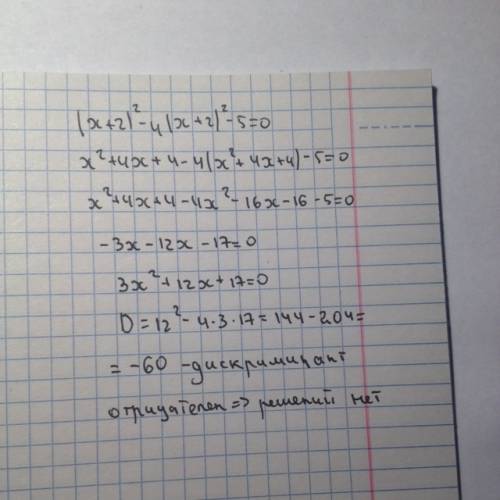 (x+2)²-4(x+2)²-5=0
x²+4x+4-4(x²+4x+4)-5=0
x²+4x+4-4x²-16x-16-5=0
-3x-12x-17=0
3x²+12x+17=0
D=12²-4·3·17=144-204=
=-60 -дискриминант
отрицателен=> решений нет